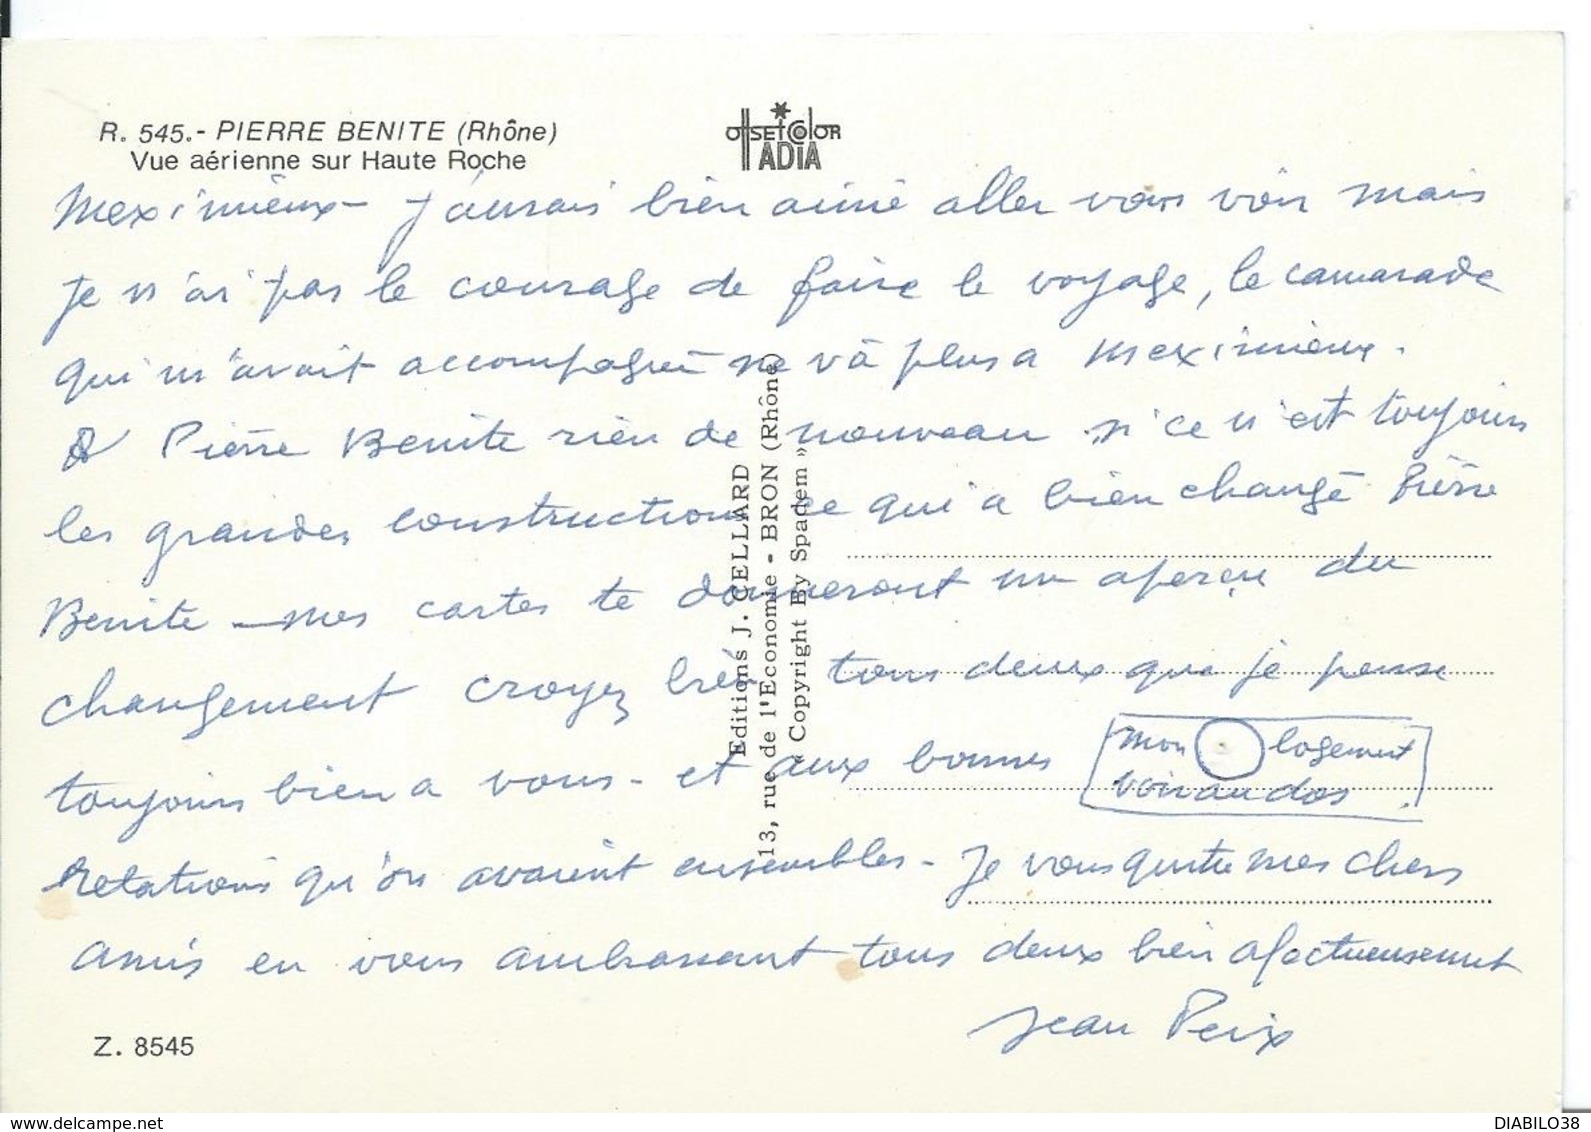 R. 545.- PIERRE BENITE (Rhône)
Vue aérienne sur Haute Roche
OffSET COlOR
ADIA
Meximieux - J'aurais bien aimé aller vous voir mais
je n'ai pas le courage de faire le voyage, le camarade
qui m'avait accompagné ne và plus a Meximieux.
Pierre Benite rien de nouveau si ce n'est toujours
les grandes constructions ce qui a bien changé Pierre
Benite - mes cartes te donneront un aperçu du
changement croyez bien tous deux que je pense
toujours bien a vous - et aux bonnes
mon logement
voir au dos.
relations qu'on avaient ensembles - Je vous quitte mes chers
amis en vous ambrassant tous deux bien afectueusement
Jean Peix
Editions J. CELLARD
13, rue de l'Economie - BRON (Rhône)
« Copyright By Spadem »
Z. 8545
DIABILO38